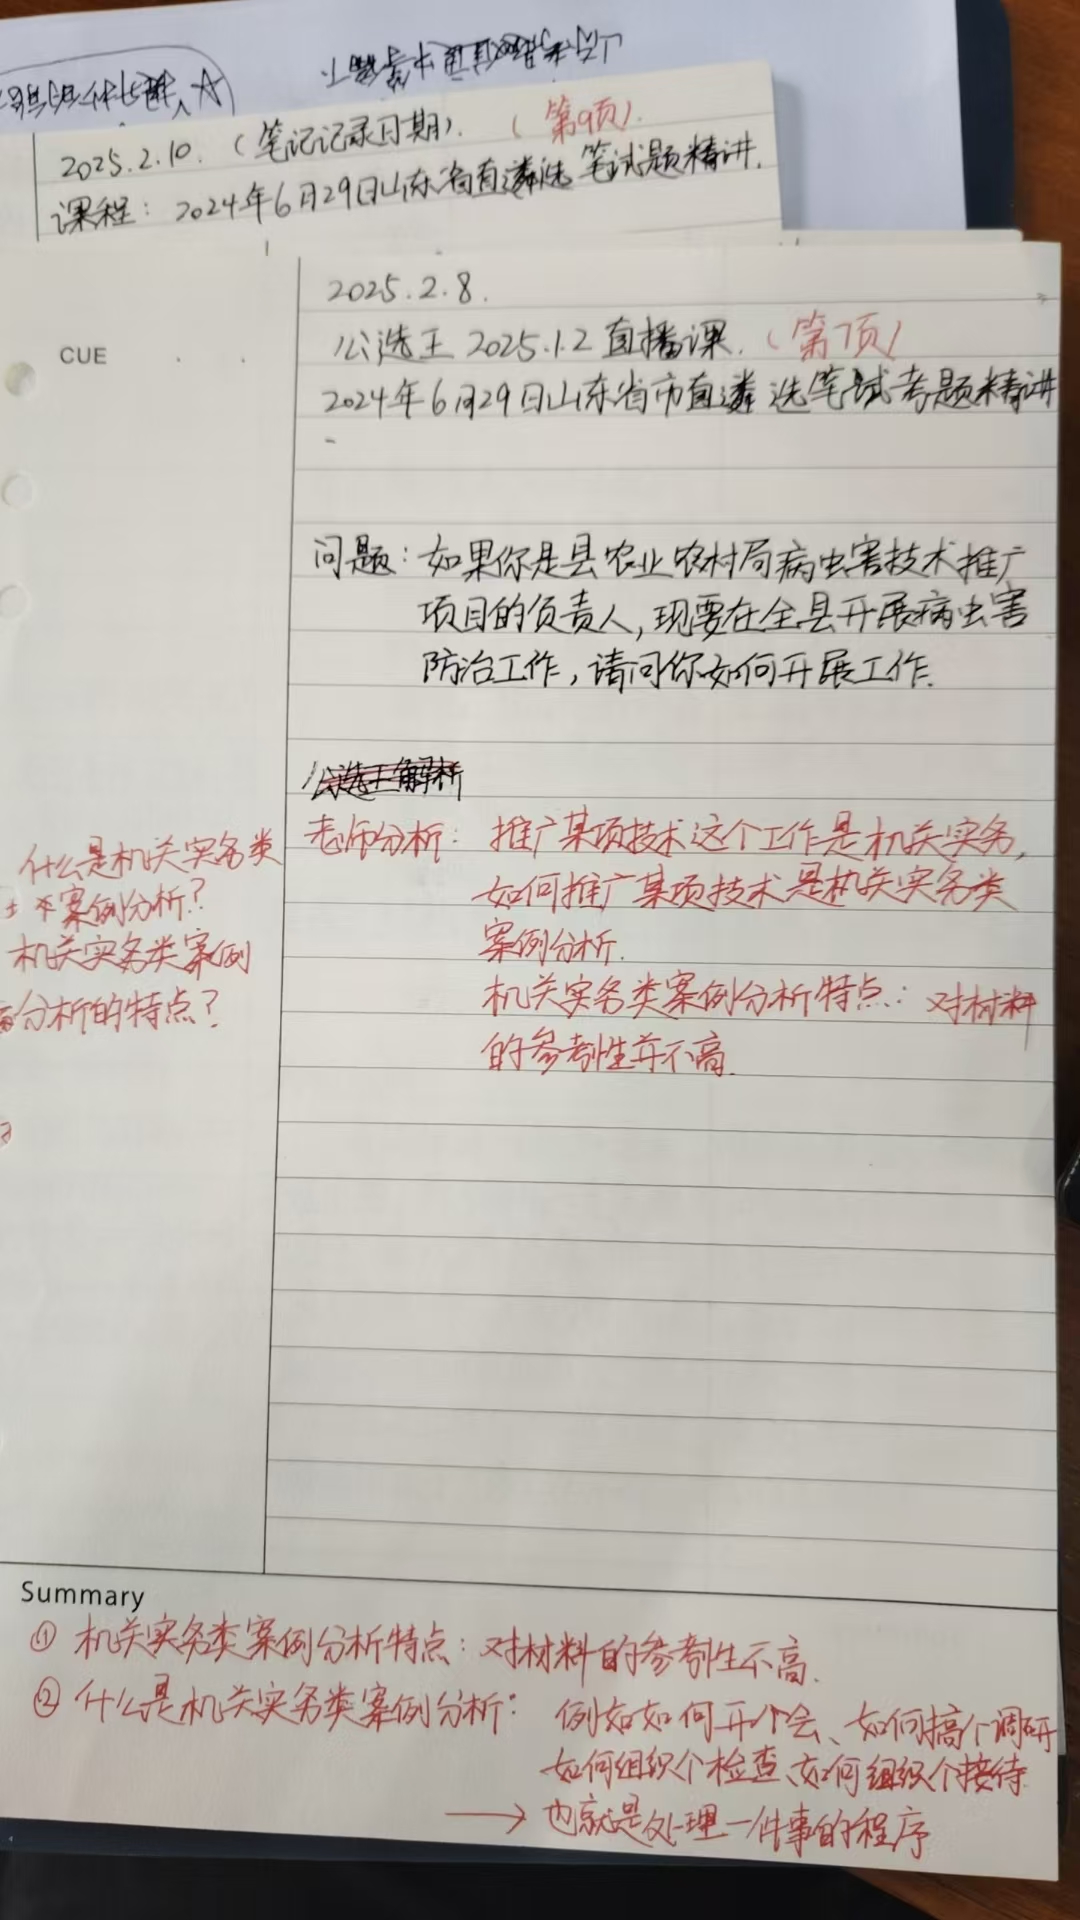 2025.2.10.（笔记记录日期）.（第9页）.
课程：2024年6月29日山东省直遴选笔试题精讲.
2025.2.8.
CUE
公选王 2025.1.2 直播课.（第7页）
2024年6月29日山东省市直遴选笔试考题精讲
问题：如果你是县农业农村局病虫害技术推广
项目的负责人,现要在全县开展病虫害
防治工作,请问你如何开展工作.
公选王解析
老师分析：推广某项技术这个工作是机关实务,
如何推广某项技术是机关实务类
案例分析.
机关实务类案例分析特点：对材料
的参考性并不高.
什么是机关实务类
案例分析？
机关实务类案例
分析的特点？
Summary
① 机关实务类案例分析特点：对材料的参考性不高.
② 什么是机关实务类案例分析：例如如何开个会、如何搞个调研
如何组织个检查、如何组织个接待.
→ 也就是处理一件事的程序